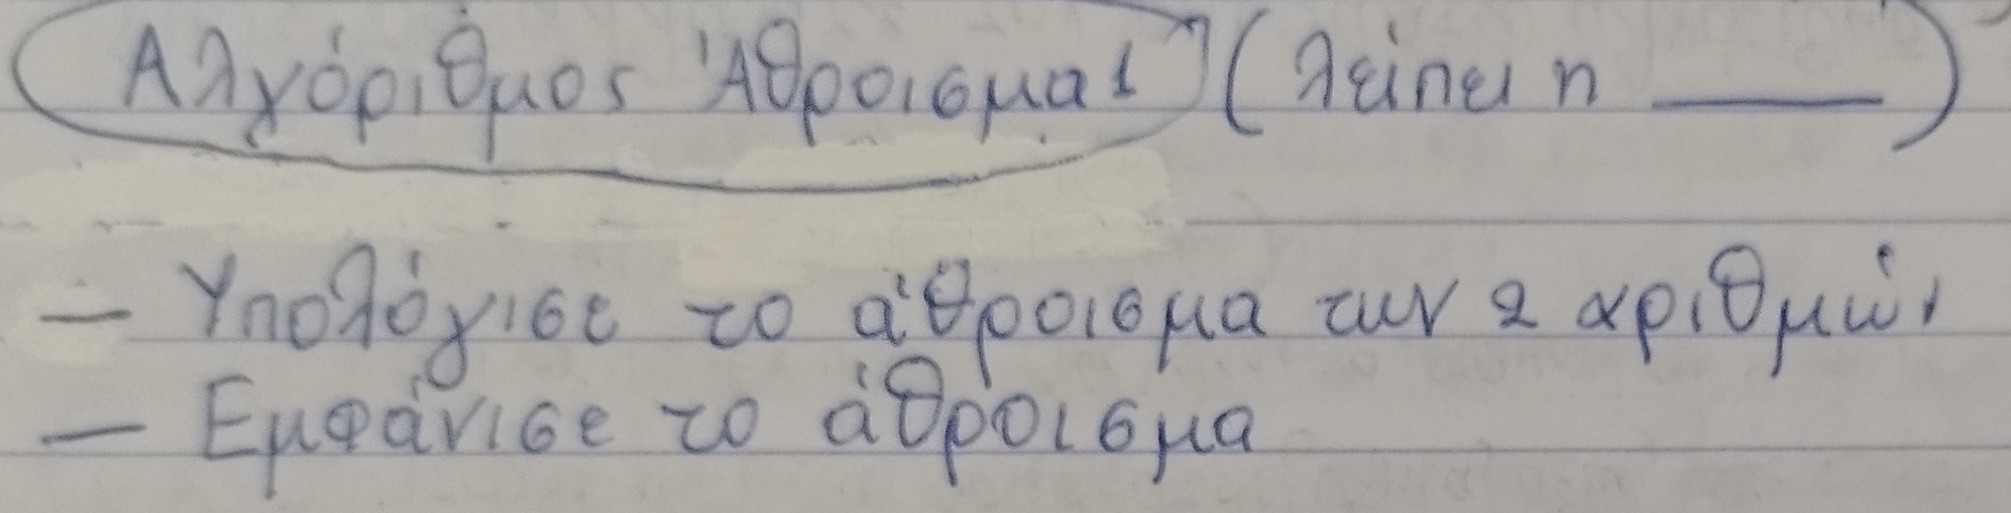 Αλγόριθμος Άθροισμα1 (λείπει η ____)
- Υπολόγισε το άθροισμα των 2 αριθμών
- Εμφάνισε το άθροισμα